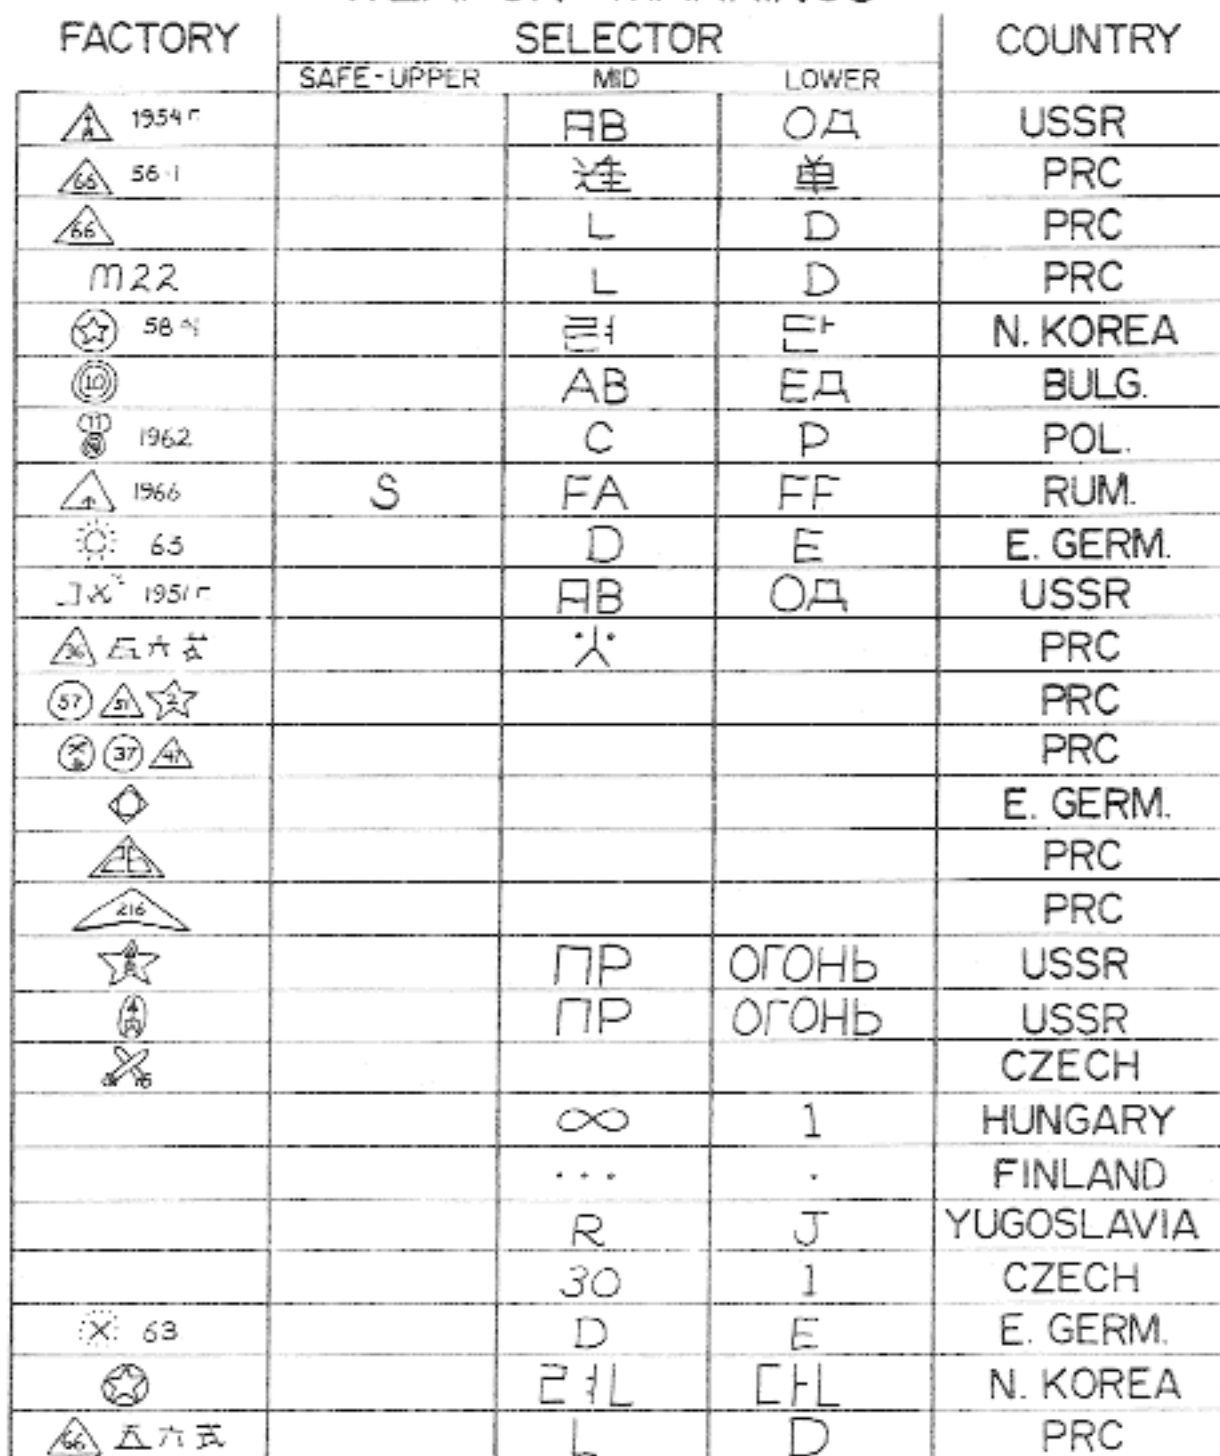 FACTORY SELECTOR COUNTRY
SAFE-UPPER MID LOWER
1954 г АВ ОД USSR
66 56-1 連 単 PRC
66 L D PRC
M22 L D PRC
58 식 려 단 N. KOREA
10 АВ ЕД BULG.
11 1962 C P POL.
1966 S FA FF RUM.
65 D E E. GERM.
1951 г АВ ОД USSR
36 五六 PRC
57 51 2 PRC
37 47 PRC
E. GERM.
26 PRC
216 PRC
ПР ОГОНЬ USSR
ПР ОГОНЬ USSR
CZECH
∞ 1 HUNGARY
... . FINLAND
R J YUGOSLAVIA
30 1 CZECH
X 63 D E E. GERM.
련 단 N. KOREA
66 五六式 L D PRC